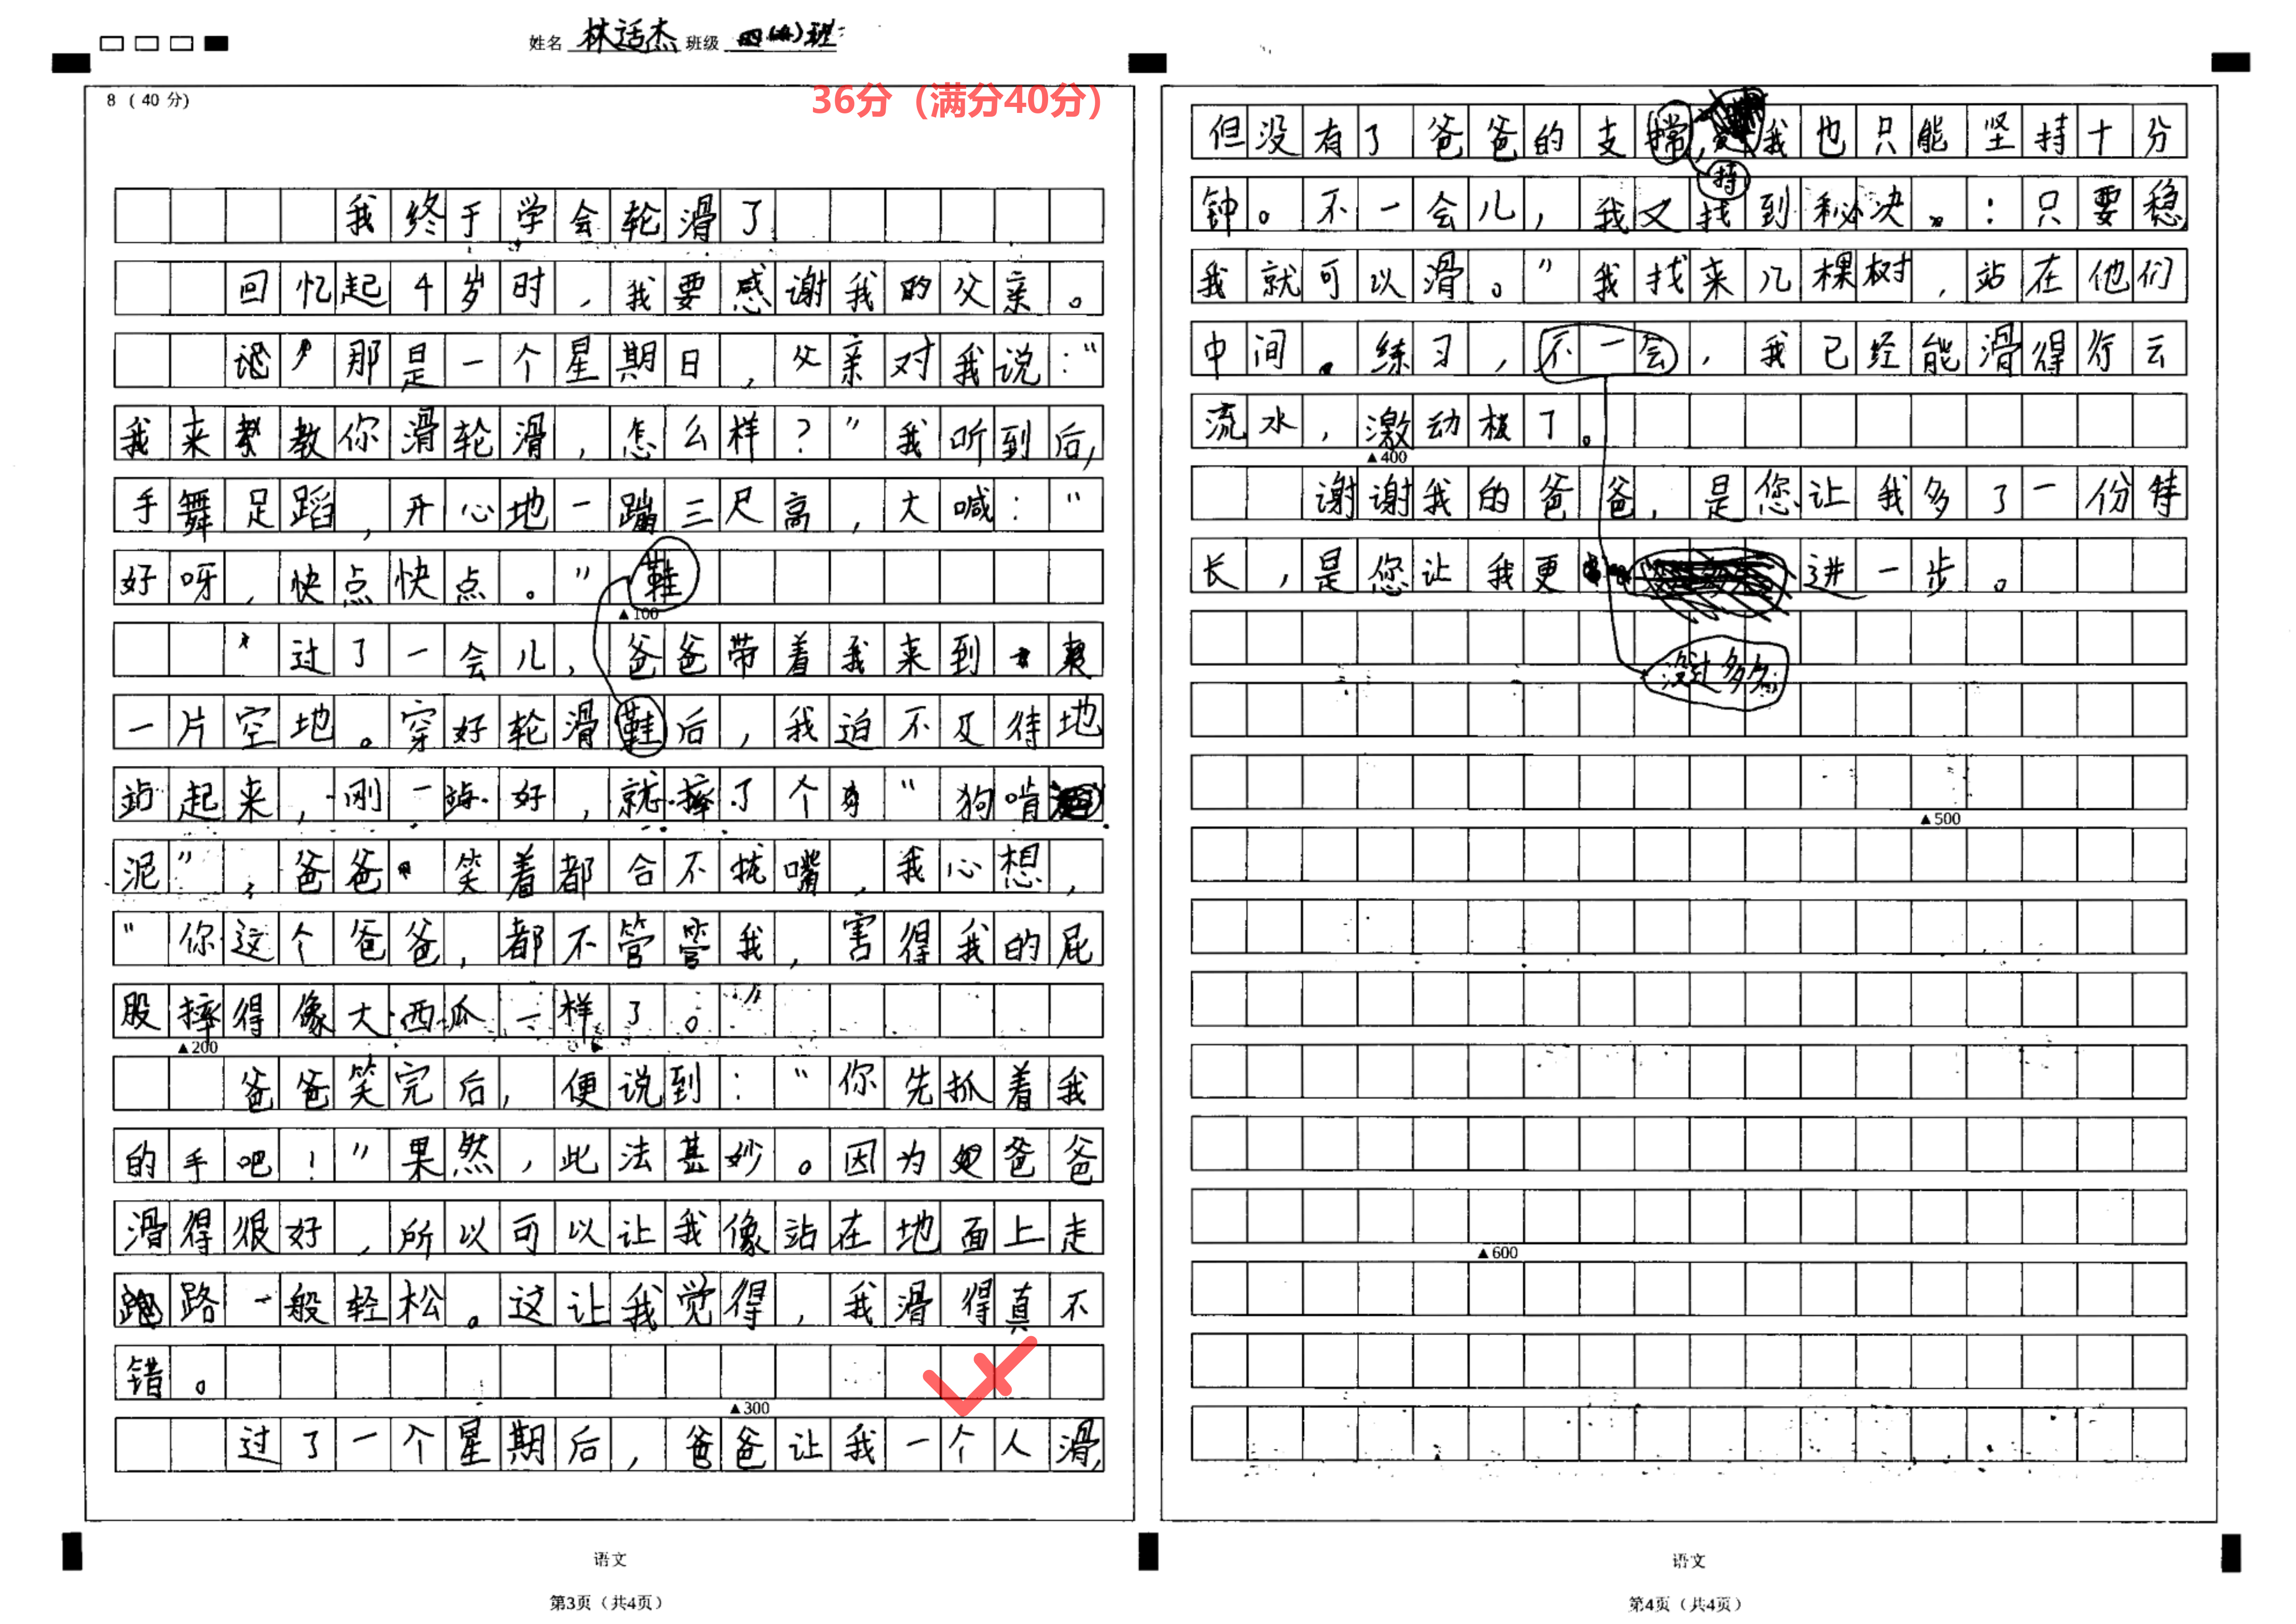 姓名 林适杰 班级 四(4)班
8 ( 40 分)
36分（满分40分）
我终于学会轮滑了
回忆起4岁时，我要感谢我的父亲。
那是一个星期日，父亲对我说：“
我来教你滑轮滑，怎么样？”我听到后，
手舞足蹈，开心地一蹦三尺高，大喊：“
好呀，快点快点。” 鞋
▲100
过了一会儿，爸爸带着我来到
一片空地。穿好轮滑鞋后，我迫不及待地
站起来，刚一站好，就摔了个“狗啃
泥”，爸爸笑着都合不拢嘴，我心想，
“你这个爸爸，都不管管我，害得我的屁
股摔得像大西瓜一样了。”
▲200
爸爸笑完后，便说到：“你先抓着我
的手吧！”果然，此法甚妙。因为爸爸
滑得很好，所以可以让我像站在地面上走
路一般轻松。这让我觉得，我滑得真不
错。
▲300
过了一个星期后，爸爸让我一个人滑，
语文
第3页（共4页）
但没有了爸爸的支持，我也只能坚持十分
钟。不一会儿，我又找到秘决：只要稳
我就可以滑。”我找来几棵树，站在他们
中间练习，不一会，我已经能滑得行云
流水，激动极了。
▲400
谢谢我的爸爸，是您让我多了一份特
长，是您让我更进一步。
没过多久
▲500
▲600
语文
第4页（共4页）